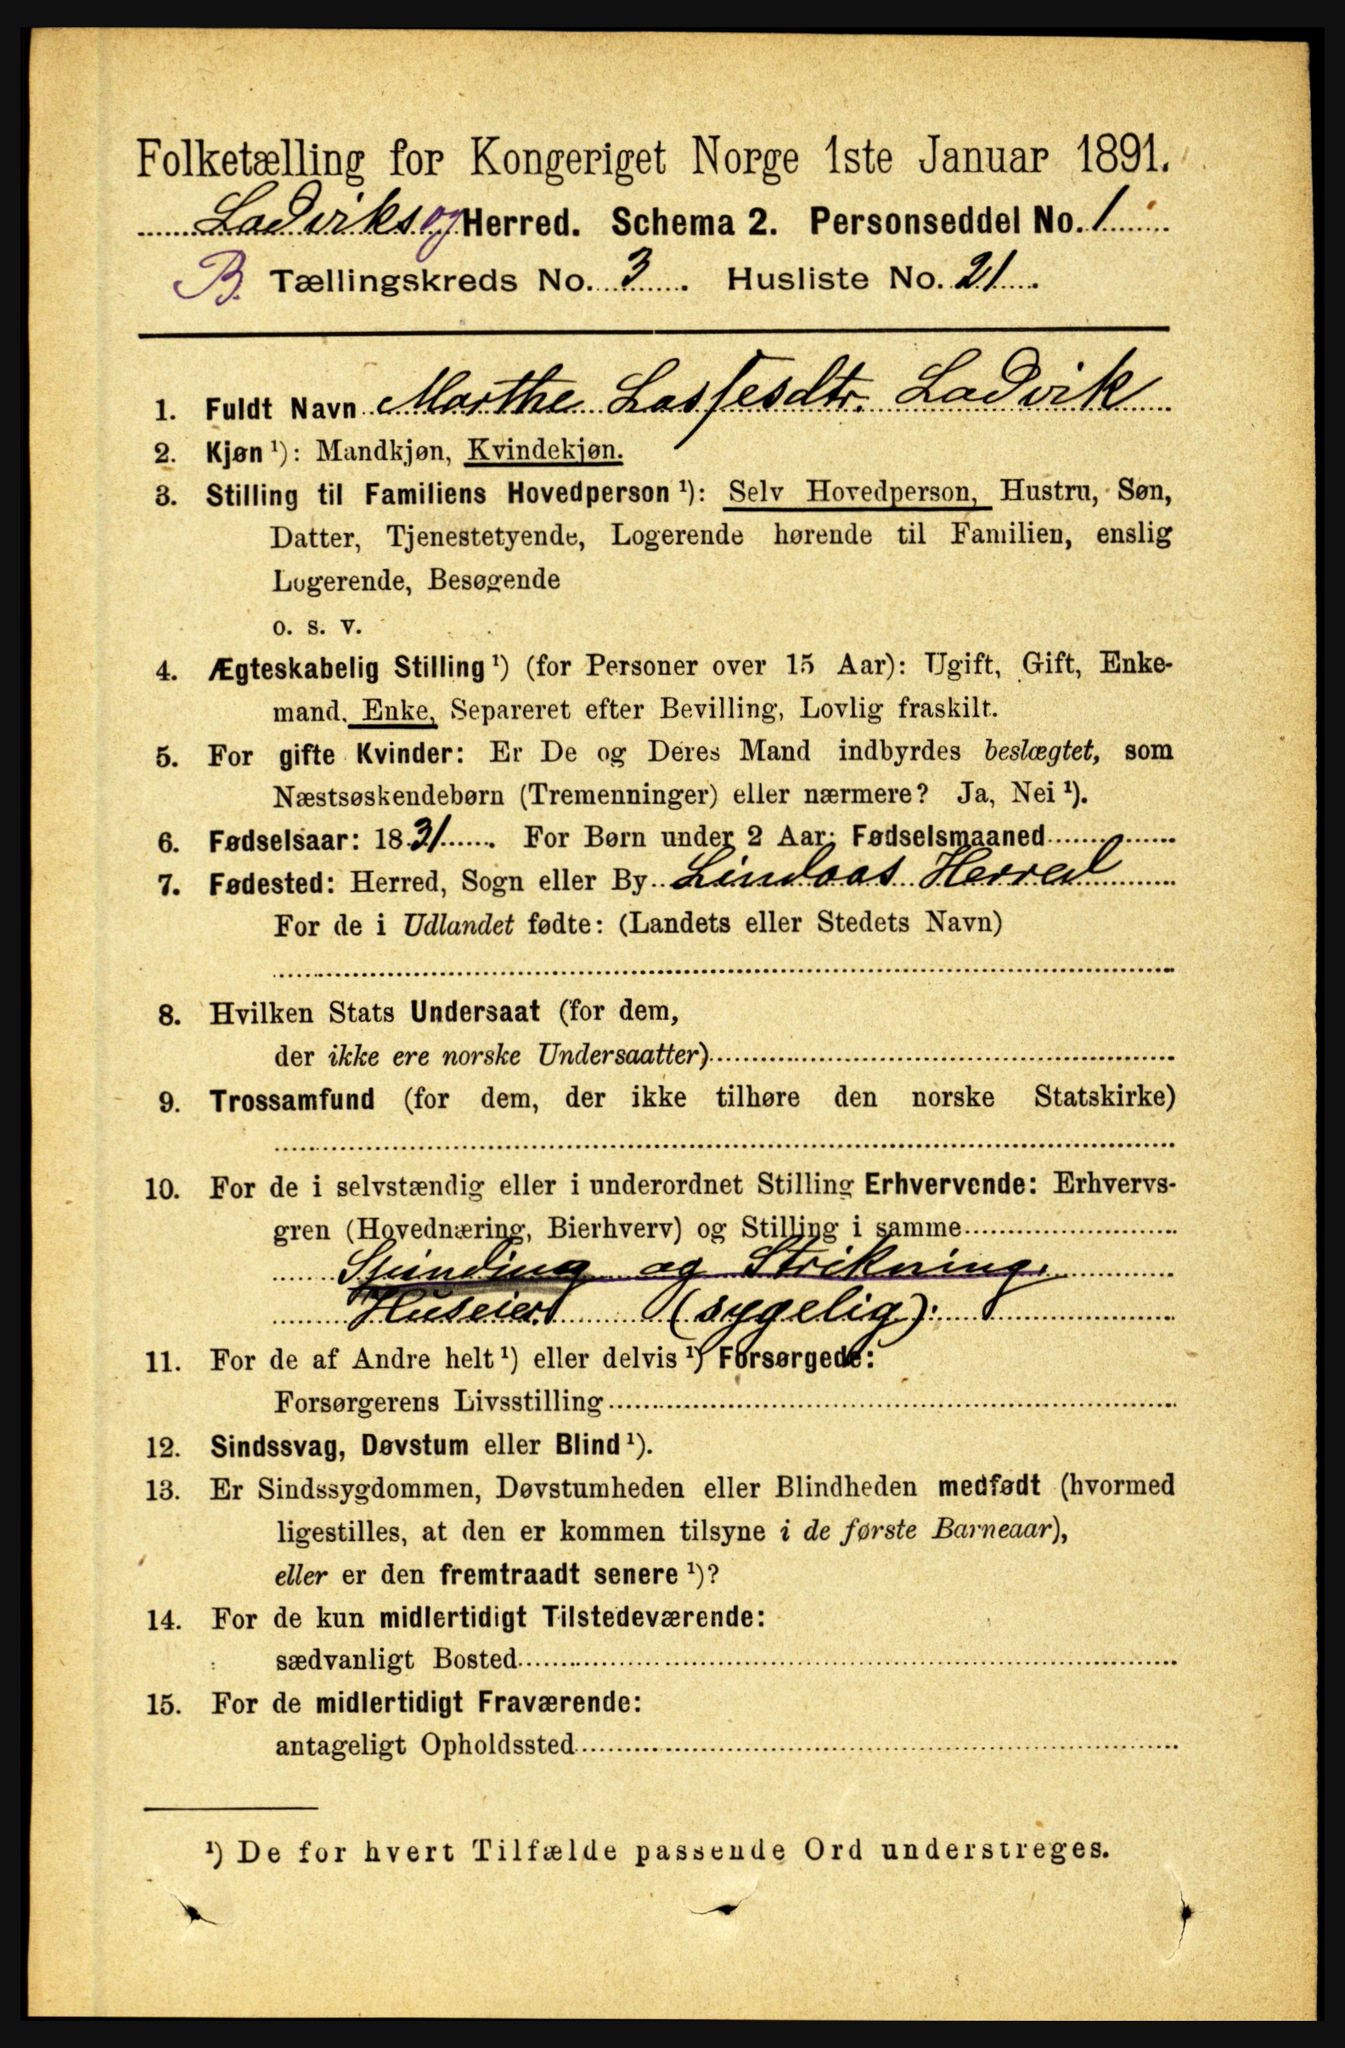 Folketælling for Kongeriget Norge 1ste Januar 1891.
Ladviks og Herred. Schema 2. Personseddel No. 1
B. Tællingskreds No. 3. Husliste No. 21.
1. Fuldt Navn Marthe Lassesdtr. Ladvik
2. Kjøn ¹): Mandkjøn, Kvindekjøn.
3. Stilling til Familiens Hovedperson ¹): Selv Hovedperson, Hustru, Søn,
Datter, Tjenestetyende, Logerende hørende til Familien, enslig
Logerende, Besøgende
o. s. v.
4. Ægteskabelig Stilling ¹) (for Personer over 15 Aar): Ugift, Gift, Enke-
mand, Enke, Separeret efter Bevilling, Lovlig fraskilt.
5. For gifte Kvinder: Er De og Deres Mand indbyrdes beslægtet, som
Næstsøskendebørn (Tremenninger) eller nærmere? Ja, Nei ¹).
6. Fødselsaar: 1831. For Børn under 2 Aar: Fødselsmaaned
7. Fødested: Herred, Sogn eller By Lindaas Herred
For de i Udlandet fødte: (Landets eller Stedets Navn)
8. Hvilken Stats Undersaat (for dem,
der ikke ere norske Undersaatter)
9. Trossamfund (for dem, der ikke tilhøre den norske Statskirke)
10. For de i selvstændig eller i underordnet Stilling Erhvervende: Erhvervs-
gren (Hovednæring, Bierhverv) og Stilling i samme
Spinding og Strikning.
Huseier (sygelig).
11. For de af Andre helt ¹) eller delvis ¹) Forsørgede:
Forsørgerens Livsstilling
12. Sindssvag, Døvstum eller Blind ¹).
13. Er Sindssygdommen, Døvstumheden eller Blindheden medfødt (hvormed
ligestilles, at den er kommen tilsyne i de første Barneaar),
eller er den fremtraadt senere ¹)?
14. For de kun midlertidigt Tilstedeværende:
sædvanligt Bosted
15. For de midlertidigt Fraværende:
antageligt Opholdssted
¹) De for hvert Tilfælde passende Ord understreges.